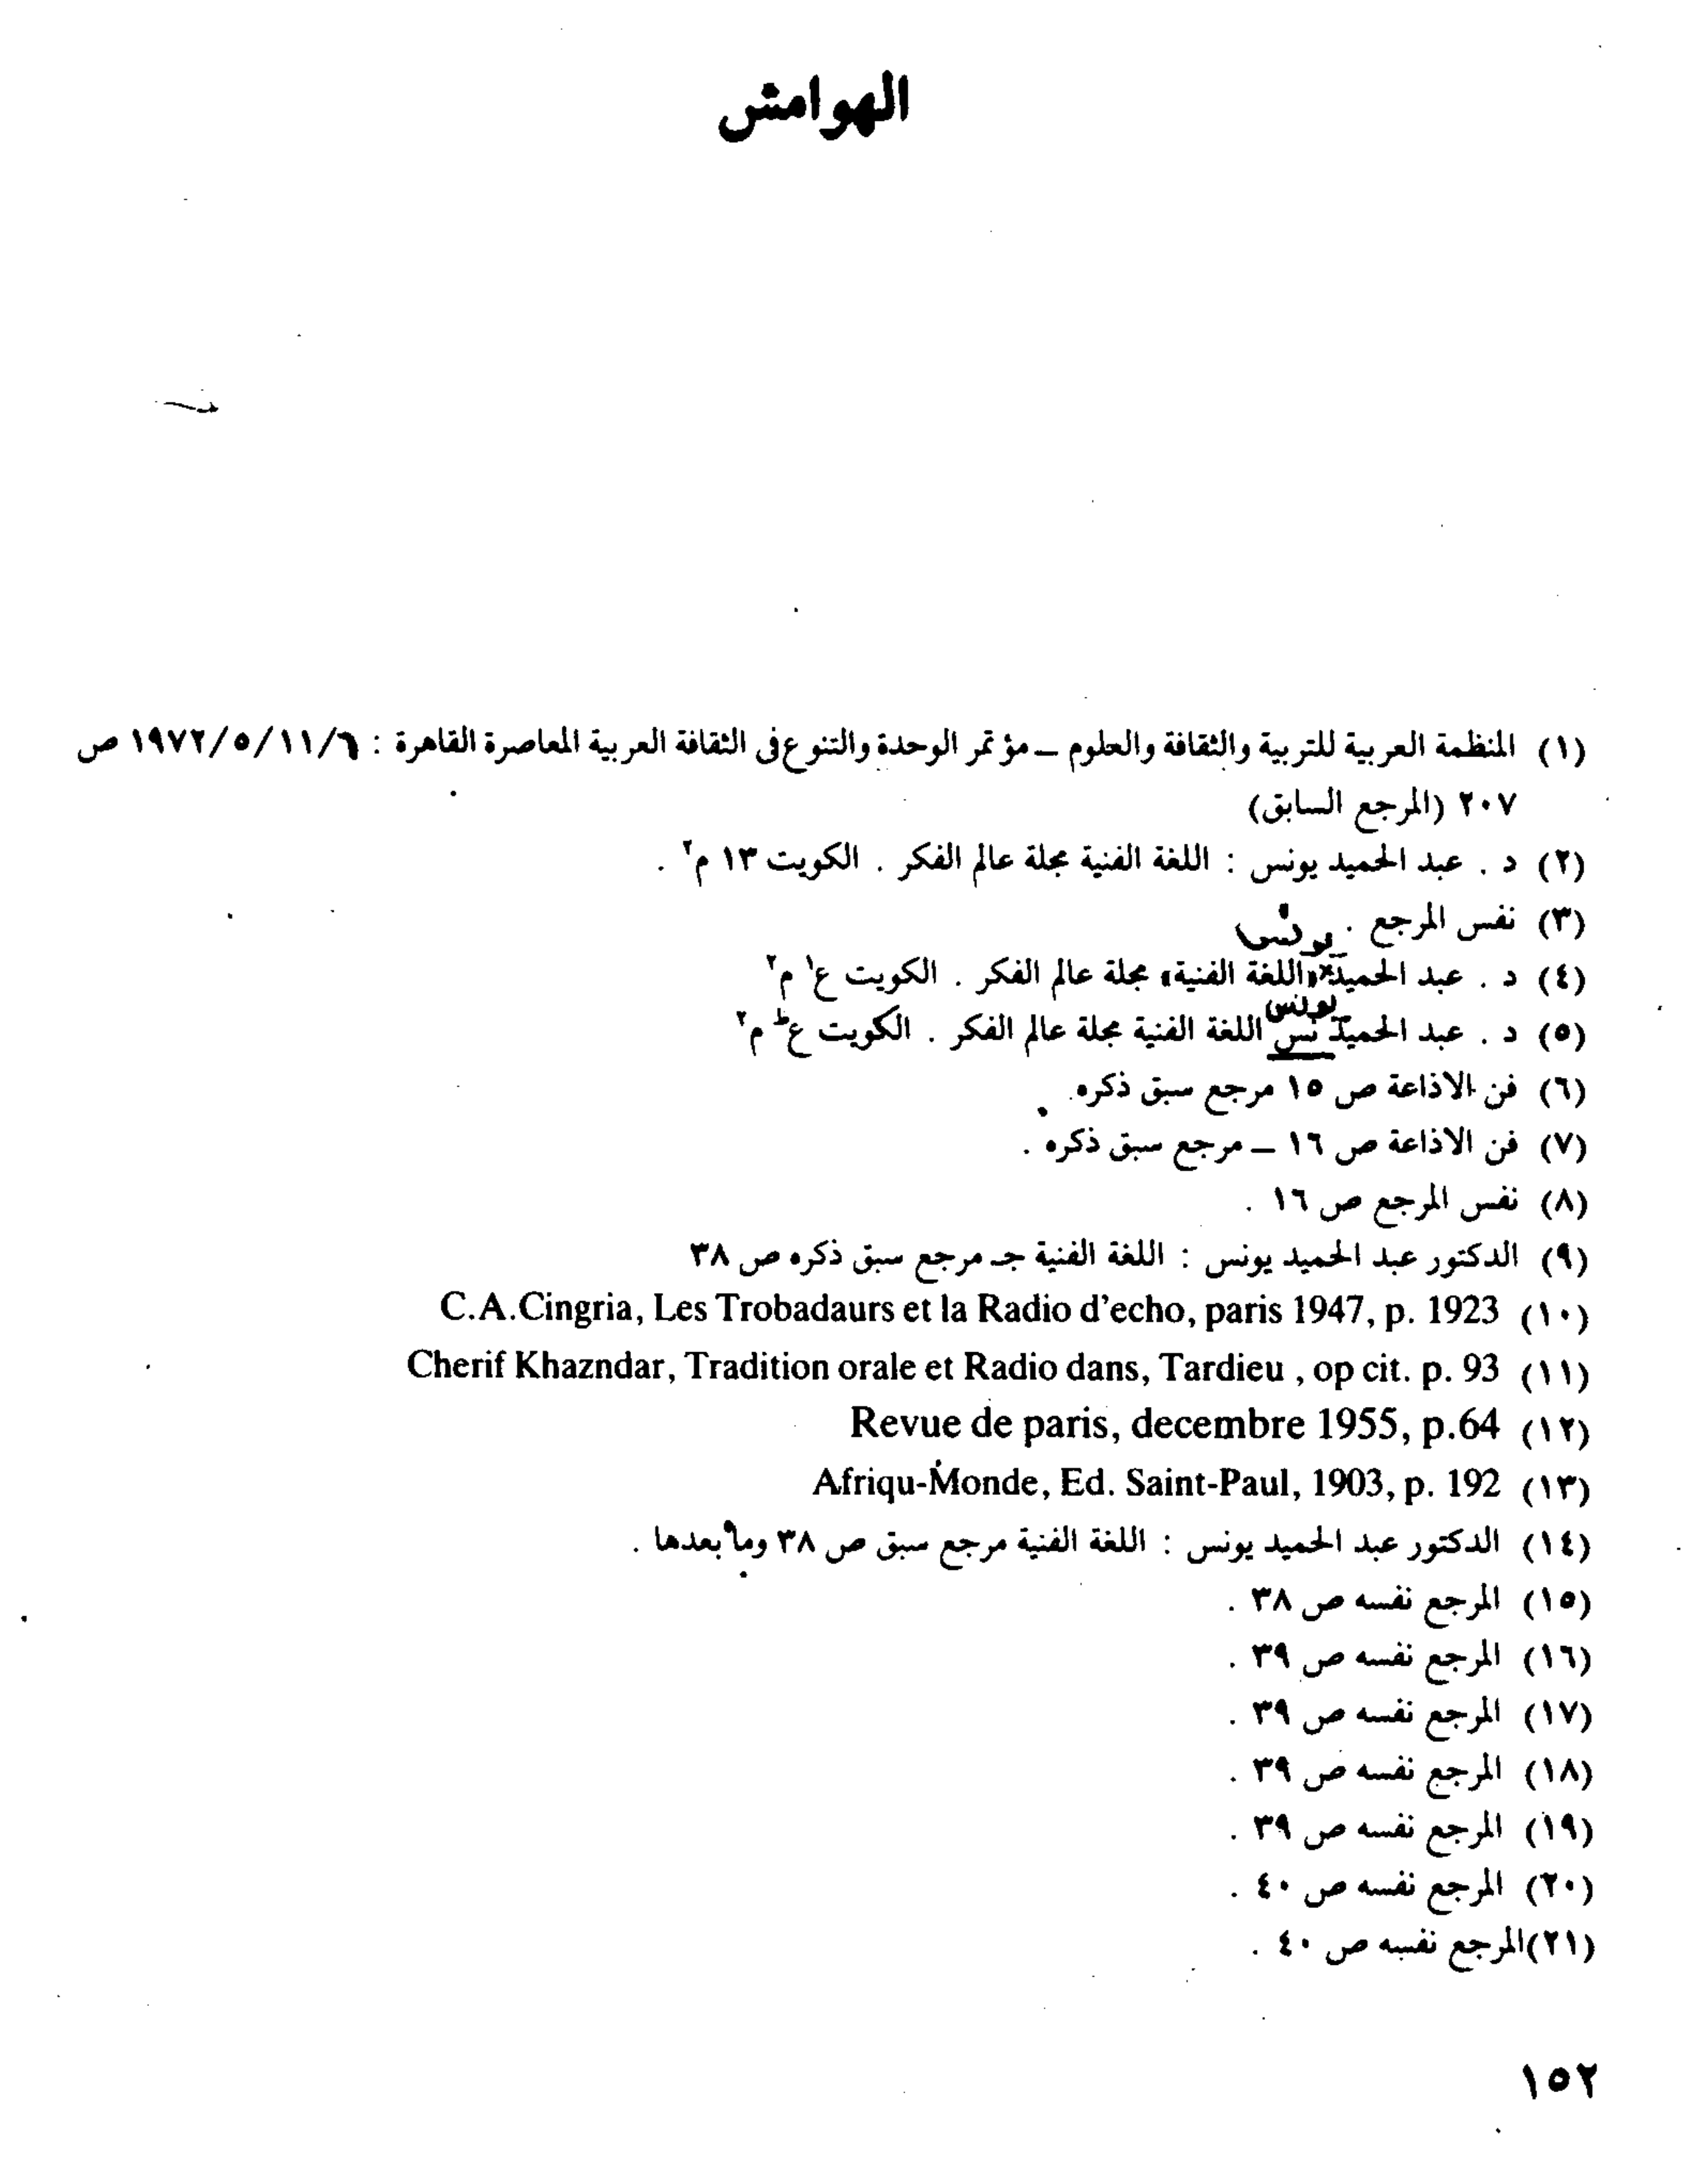 الهوامش
(١) المنظمة العربية للتربية والثقافة والعلوم ــ مؤتمر الوحدة والتنوع فى الثقافة العربية المعاصرة القاهرة : ٦/١١/٥/١٩٧٢ ص
٢٠٧ (المرجع السابق)
(٢) د . عبد الحميد يونس : اللغة الفنية مجلة عالم الفكر . الكويت ١٣ م٢ .
(٣) نفس المرجع .
يونس
(٤) د . عبد الحميد «اللغة الفنية» مجلة عالم الفكر . الكويت ع١ م٢
يونس
(٥) د . عبد الحميد نس اللغة الفنية مجلة عالم الفكر . الكويت ع م٢
(٦) فن الاذاعة ص ١٥ مرجع سبق ذكره.
(٧) فن الاذاعة ص ١٦ ــ مرجع سبق ذكره .
(٨) نفس المرجع ص ١٦ .
(٩) الدكتور عبد الحميد يونس : اللغة الفنية جـ مرجع سبق ذكره ص ٣٨
(١٠) C.A.Cingria, Les Trobadaurs et la Radio d'echo, paris 1947, p. 1923
(١١) Cherif Khazndar, Tradition orale et Radio dans, Tardieu , op cit. p. 93
(١٢) Revue de paris, decembre 1955, p.64
(١٣) Afriqu-Monde, Ed. Saint-Paul, 1903, p. 192
(١٤) الدكتور عبد الحميد يونس : اللغة الفنية مرجع سبق ص ٣٨ وما بعدها .
(١٥) المرجع نفسه ص ٣٨ .
(١٦) المرجع نفسه ص ٣٩ .
(١٧) المرجع نفسه ص ٣٩ .
(١٨) المرجع نفسه ص ٣٩ .
(١٩) المرجع نفسه ص ٣٩ .
(٢٠) المرجع نفسه ص ٤٠ .
(٢١)المرجع نفسه ص ٤٠ .
١٥٢